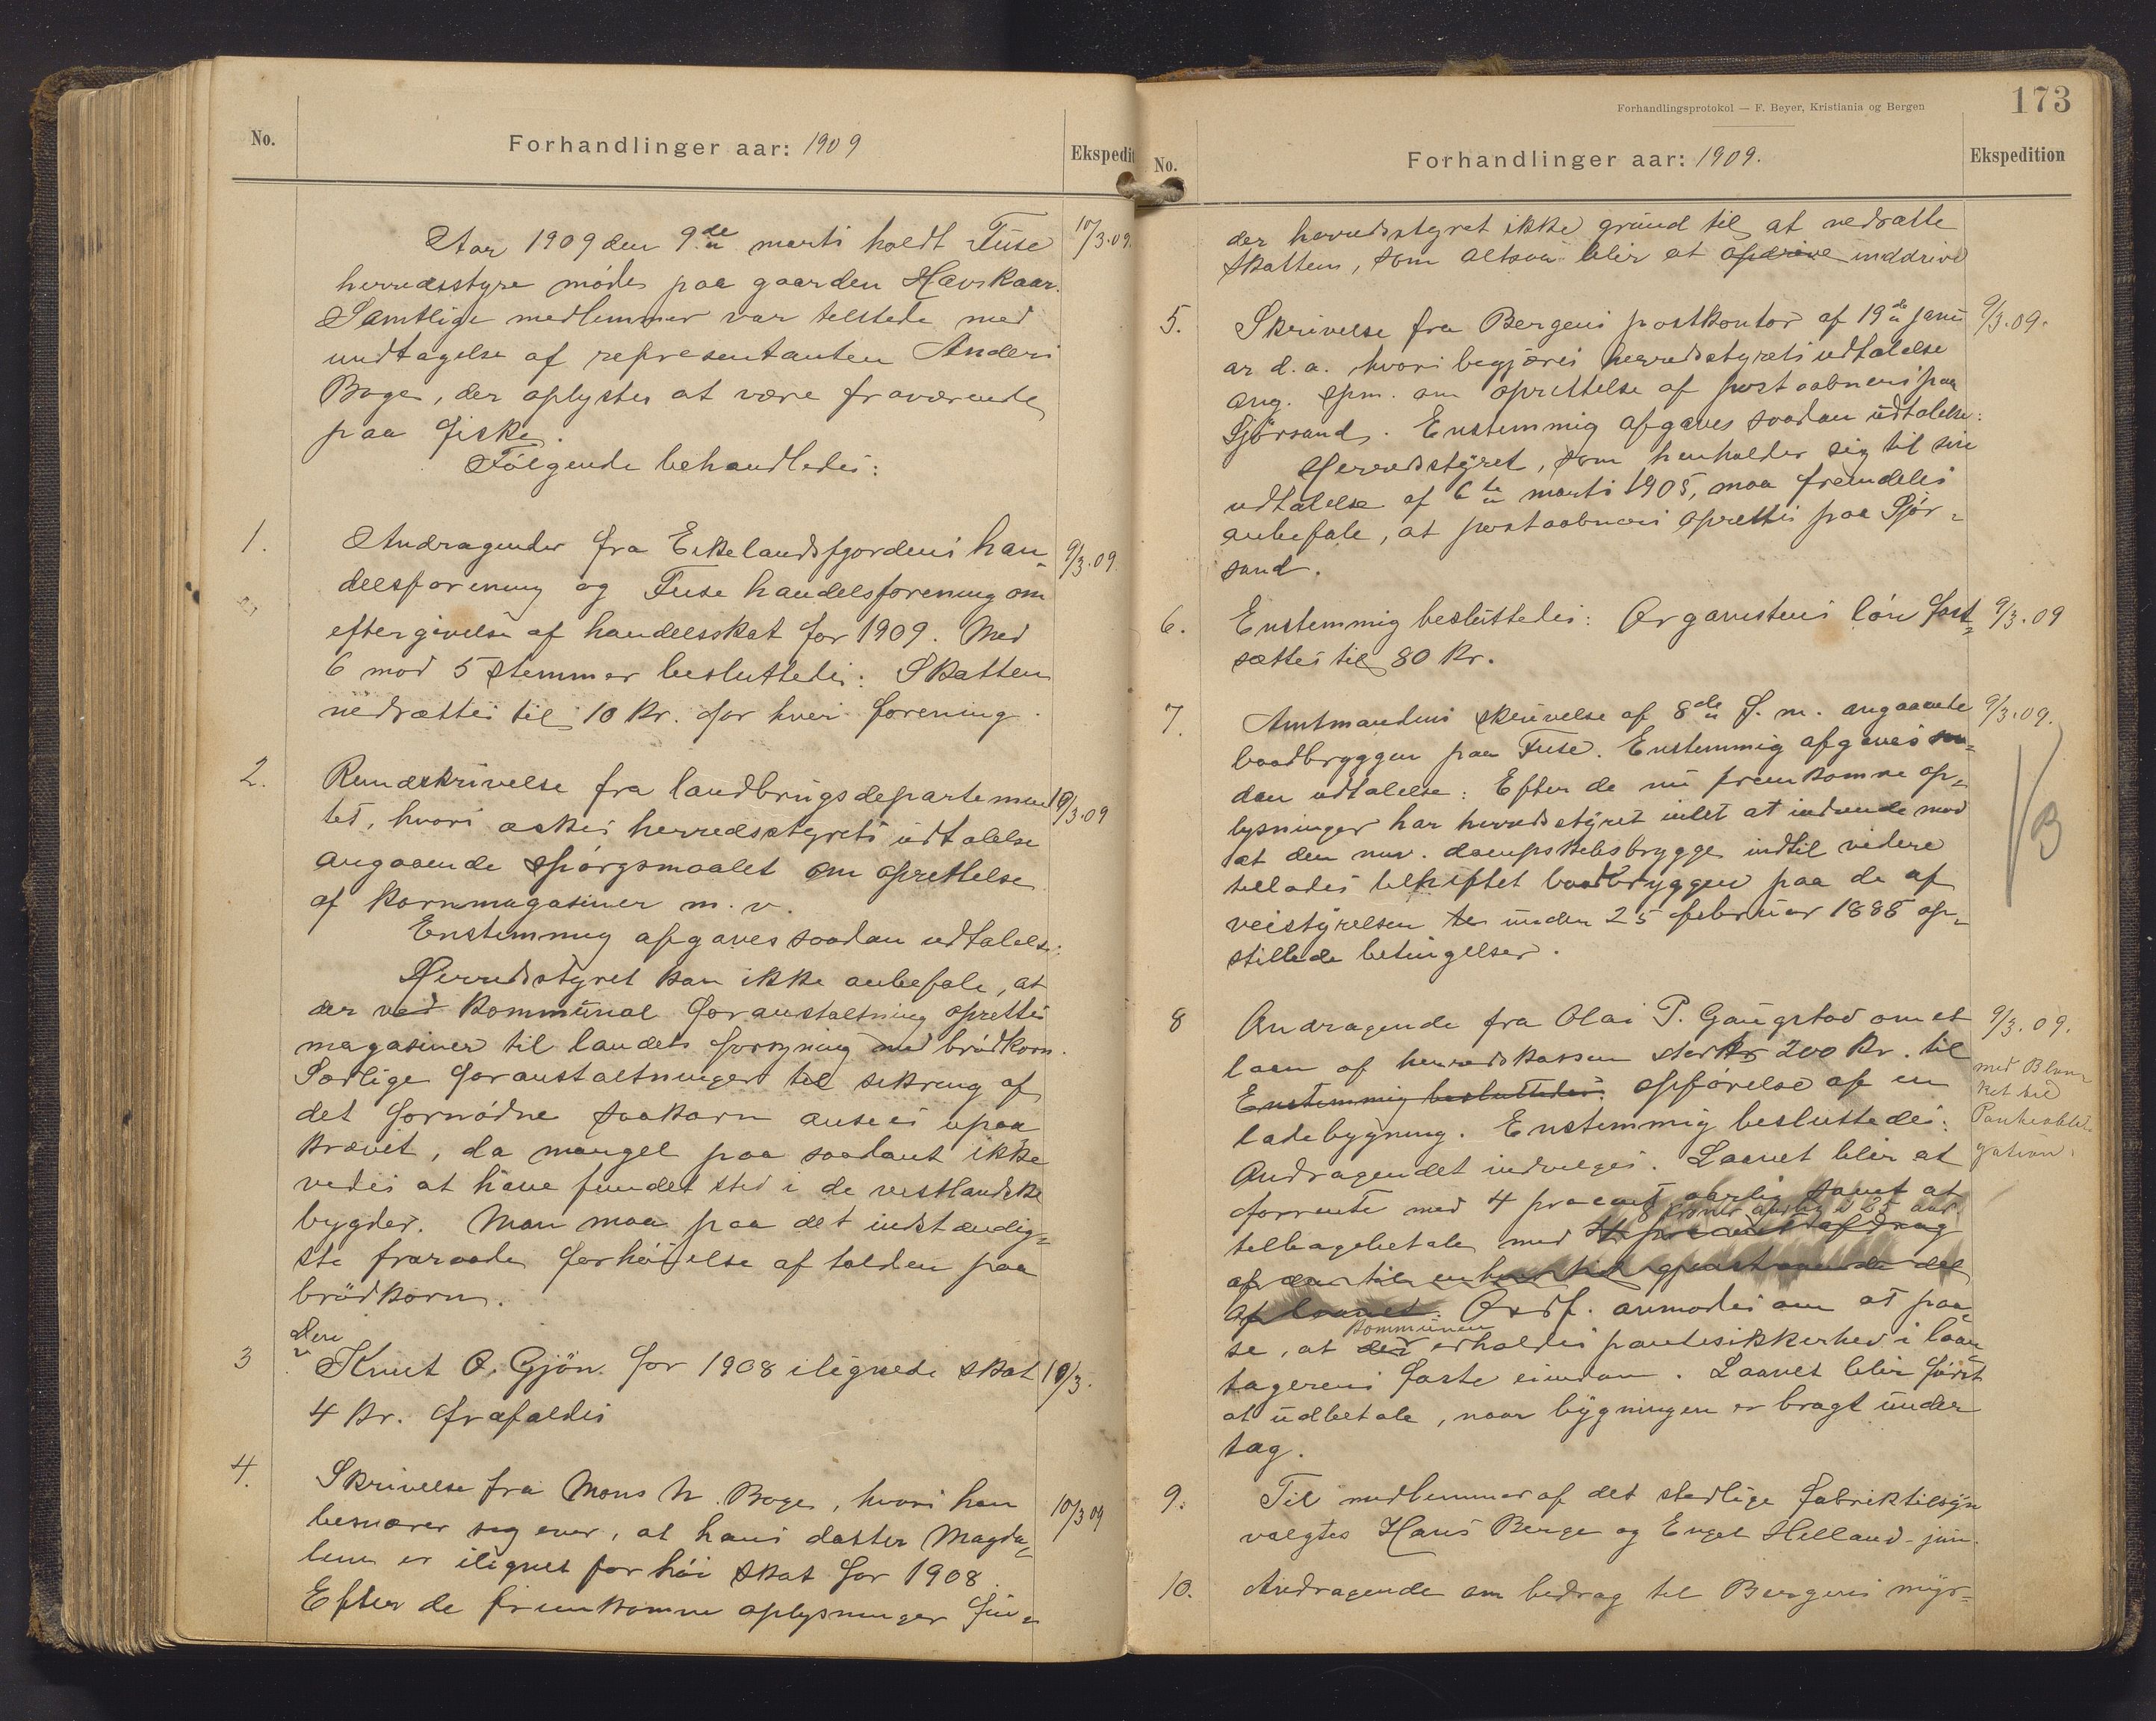 No.
Forhandlinger aar: 1909
Ekspedit
Aar 1909 den 9de marts holdt Fuse
10/3.09.
herredsstyre møde paa gaarden Havskaar.
Samtlige medlemmer var tilstede med
undtagelse af repræsentanten Anders
Boge, der oplystes at være fraværende
paa fiske.
Følgende behandledes:
1. Andragender fra Eikelandsfjordens han-
9/3.09.
delsforening og Fuse handelsforening om
eftergivelse af handelsskat for 1909. Med
6 mod 5 stemmer besluttedes: Skatten
nedsættes til 10 kr. for hver forening.
2. Rundskrivelse fra landbrugsdepartemen
10/3.09
tet, hvori æskes herredsstyrets udtalelse
angaaende spørgsmaalet om oprettelse
af kornmagasiner m. v.
Enstemmig afgaves saadan udtalelse:
Herredsstyret kan ikke anbefale, at
der ved kommunal foranstaltning oprettes
magasiner til landets forsyning med brødkorn.
Særlige foranstaltninger til sikring af
det fornødne saakorn ansees upaa
krævet, da mangel paa saadant ikke
vides at have fundet sted i de vestlandske
bygder. Man maa paa det indstændig-
ste fraraade forhøielse af tolden paa
brødkorn.
3 Den Knut O. Gjøn for 1908 ilignede skat
10/3.
4 kr. frafaldes
4. Skrivelse fra Mons N. Boge, hvori han
10/3 09
besværer sig over, at hans datter Magda-
lene er ilignet for høi skat for 1908.
Efter de fremkomne oplysninger fin-
Forhandlingsprotokol — F. Beyer, Kristiania og Bergen
173
No.
Forhandlinger aar: 1909.
Ekspedition
der herredsstyret ikke grund til at nedsætte
skatten, som altsaa blir at opdrive inddrive
5. Skrivelse fra Bergens postkontor af 19de janu
9/3.09.
ar d. a. hvori begjæres herredsstyrets udtalelse
ang. spm. om oprettelse af postaabneri paa
Sjørsand. Enstemmig afgaves saadan udtalelse:
Herredsstyret, som henholder sig til sin
udtalelse af 6te marts 1905, maa fremdeles
anbefale, at postaabneri oprettes paa Sjør-
sand.
6. Enstemmig besluttedes: Organistens løn fast-
9/3.09
sættes til 80 kr.
7. Amtmandens skrivelse af 8de f. m. angaaende
9/3.09.
baadbryggen paa Fuse. Enstemmig afgaves saa-
dan udtalelse: Efter de nu fremkomne op-
lysninger har herredsstyret intet at indvende mod
at den nuv. dampskibsbrygge indtil videre
tillades tilheftet baadbryggen paa de af
veistyrelsen te under 25 februar 1888 op-
stillede betingelser.
8 Andragende fra Olai P. Gaugstad om et
9/3.09.
laan af herredskassen stort kr 200 kr. til
med Blan-
Enstemmig besluttedes: opførelse af en
ket til
ladebygning. Enstemmig besluttedes:
Panteobli-
Andragendet indvilges. Laanet blir at
gation.
forrente med 4 procent aarlig samt at
8 kroner aarlig i 25 aar.
tilbagebetale med 4 procent afdrag
af den til enhver tid gjenstaaende del
af laanet. Ordf. anmodes om at paa-
kommunen
se, at der erholdes pantesikkerhed i laan-
tagerens faste eiendom. Laanet blir først
at udbetale, naar bygningen er bragt under
tag.
9. Til medlemmer af det stedlige fabriktilsyn
valgtes Hans Berge og Engel Helland jun.
10. Andragende om bidrag til Bergens myr-